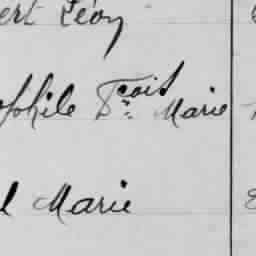 ert Léon
ophile Fçois Marie
l Marie